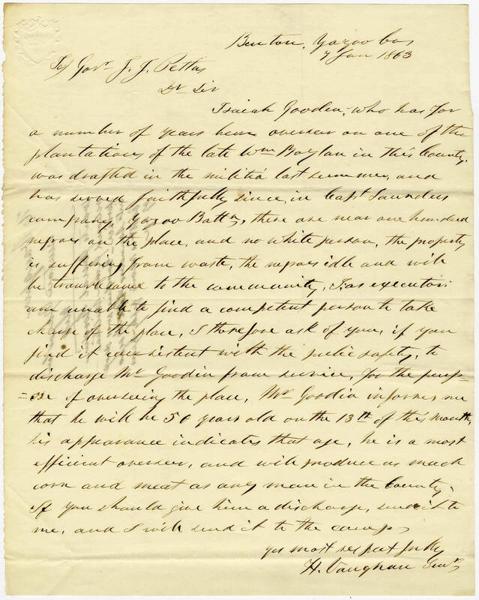 Benton, Yazoo Co,
7 Jan 1863
To Gov. J. J. Pettus
Dr Sir
Isaiah Goodin, who has for
a number of years been overseer on one of the
plantations of the late Wm Boylan in this County,
was drafted in the militia last summer, and
has served faithfully since, in Capt Saunders
company, Yazoo Battn, there are near one hundred
negroes on the place, and no white person, the property
is suffering from waste, the negroes idle and will
be troublesome to the community, I as executor
am unable to find a competent person to take
charge of the place, I therefore ask of you, if you
find it consistent with the public safety, to
discharge Mr Goodin from service, for the purp-
=ose of overseeing the place, Mr Goodin informs me
that he will be 50 years old on the 13th of the month,
his appearance indicates that age, he is a most
efficient overseer, and will produce as much
corn and meat as any man in the County,
If you should give him a discharge, send it to
me, and I will send it to the camp,
yrs most respectfully
H. Vaughan Senr